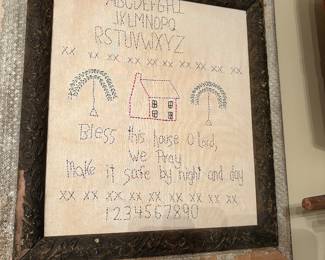 ABCDEFGHI
JKLMNOPQ
RSTUVWXYZ
XX XX XX XX XX XX XX XX
Bless this house O Lord,
We Pray
Make it safe by night and day
XX XX XX XX XX XX XX
1234567890